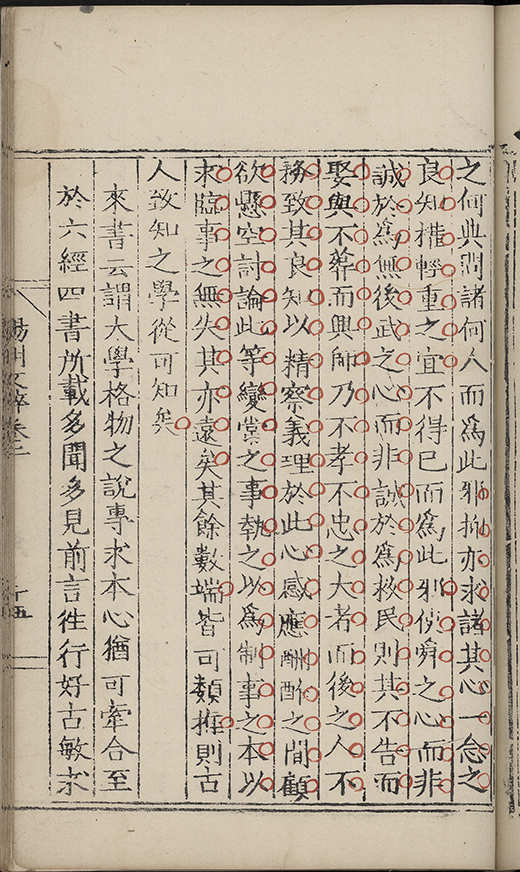 之何典問諸何人而爲此邪抑亦求諸其心一念之
良知權輕重之宜不得已而爲此邪使舜之心而非
誠於爲無後武之心而非誠於爲救民則其不告而
娶與不葬而興師乃不孝不忠之大者而後之人不
務致其良知以精察義理於此心感應酬酢之間顧
欲懸空討論此等變常之事執之以爲制事之本以
求臨事之無失其亦遠矣其餘數端皆可類推則古
人致知之學從可知矣
來書云謂大學格物之說專求本心猶可牽合至
於六經四書所載多聞多見前言徃行好古敏求
陽明文粹卷二
十五